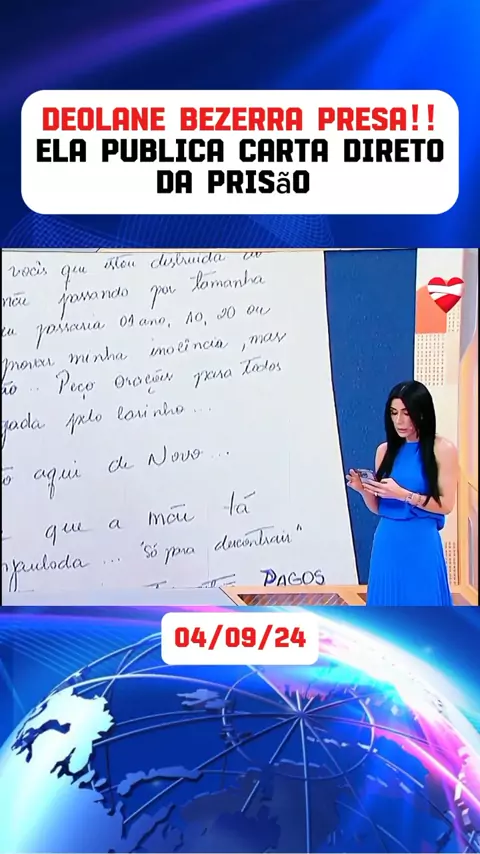 DEOLANE BEZERRA PRESA!!
ELA PUBLICA CARTA DIRETO
DA PRISãO
vocês que estou destruida ao
mãe passando por tamanha
eu passaria 01 ano, 10, 20 ou
provar minha inocência, mas
ão.. Peço orações para todos
gada pelo carinho...
o aqui de Novo...
que a mãe tá
njaulada... "Só para descontrair"
PAGOS
04/09/24